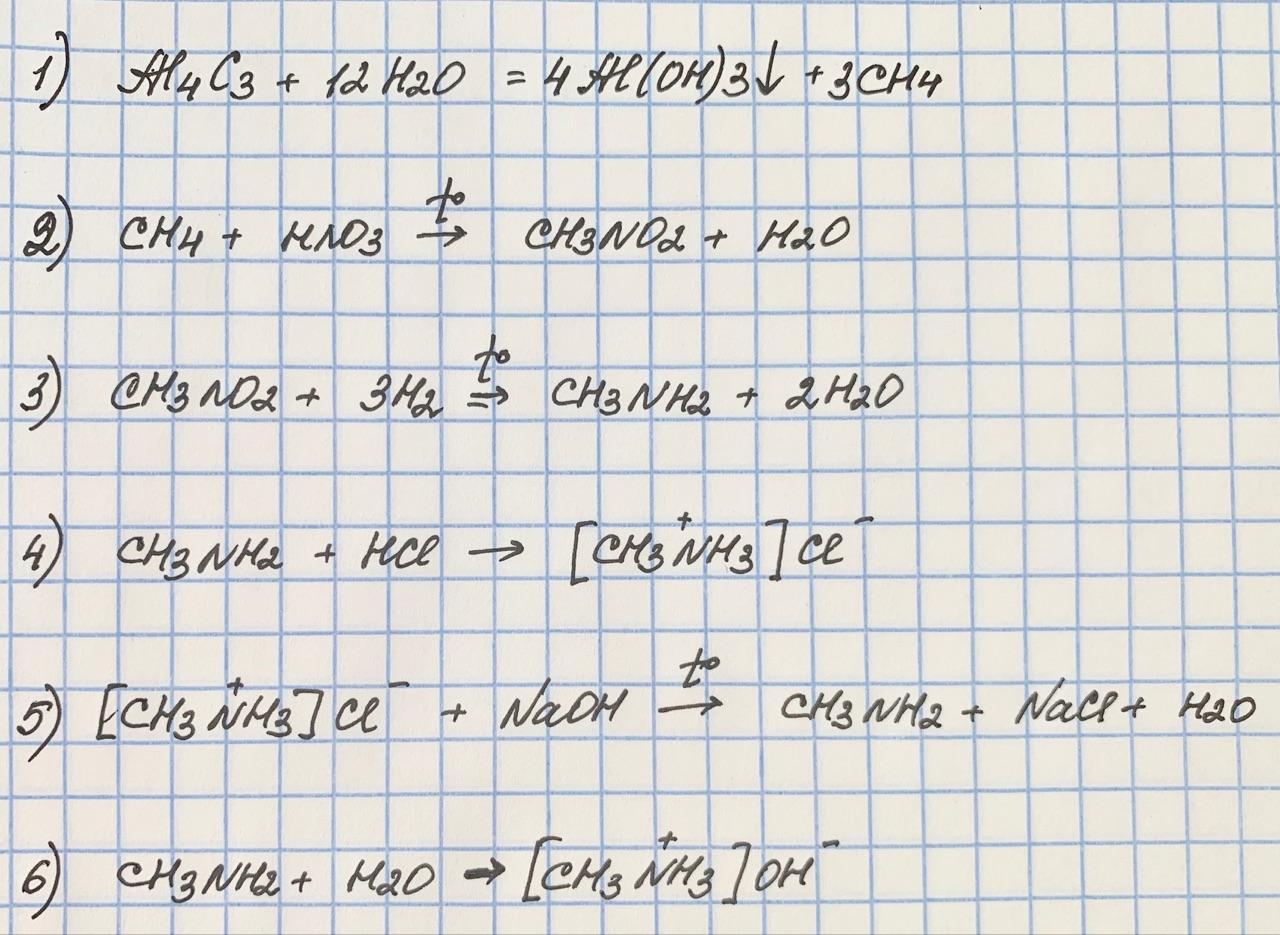 1) Al4C3 + 12H2O = 4Al(OH)3↓ + 3CH4
2) CH4 + HNO3 t°→ CH3NO2 + H2O
3) CH3NO2 + 3H2 t°⇒ CH3NH2 + 2H2O
4) CH3NH2 + HCl → [CH3N⁺H3]Cl⁻
5) [CH3N⁺H3]Cl⁻ + NaOH t°→ CH3NH2 + NaCl + H2O
6) CH3NH2 + H2O → [CH3N⁺H3]OH⁻